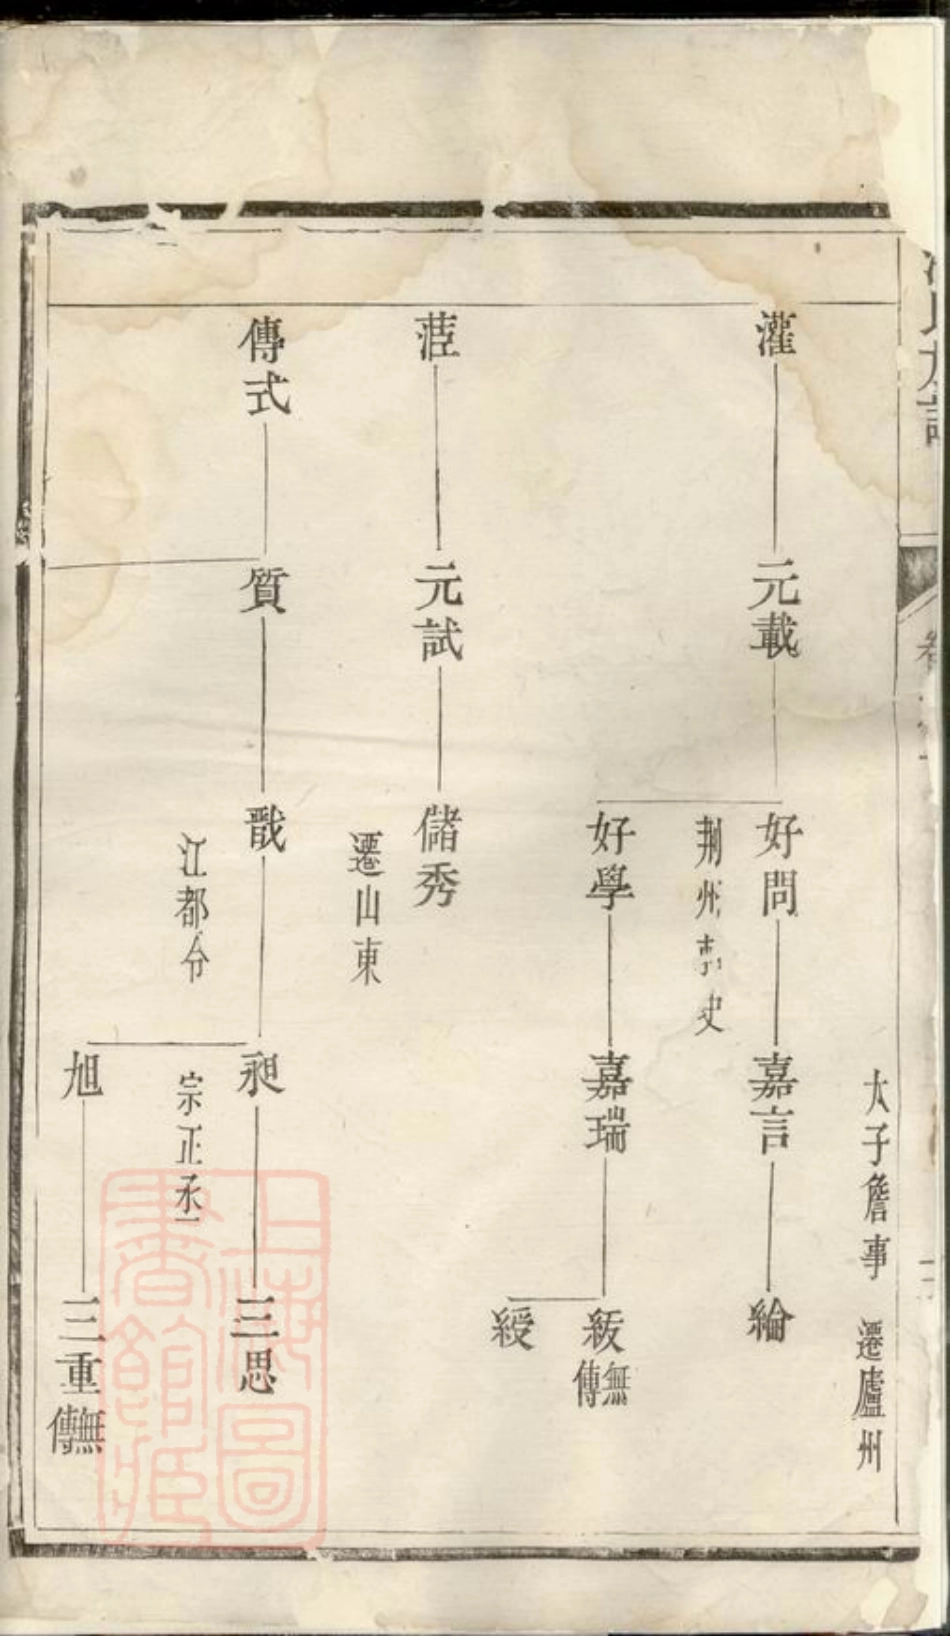 太子詹事 遷廬州
灌 元載 好問 嘉言 綸
荆州刺史
好學 嘉瑞 紱 無傳
綬
茳 元試 儲秀
遷山東
傳式 質 戩 昶 三思
江都令
宗正丞
旭 三重 無傳
上海圖書館藏